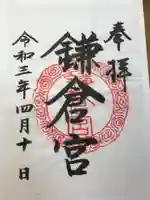 奉拝
鎌倉宮
令和三年四月十日